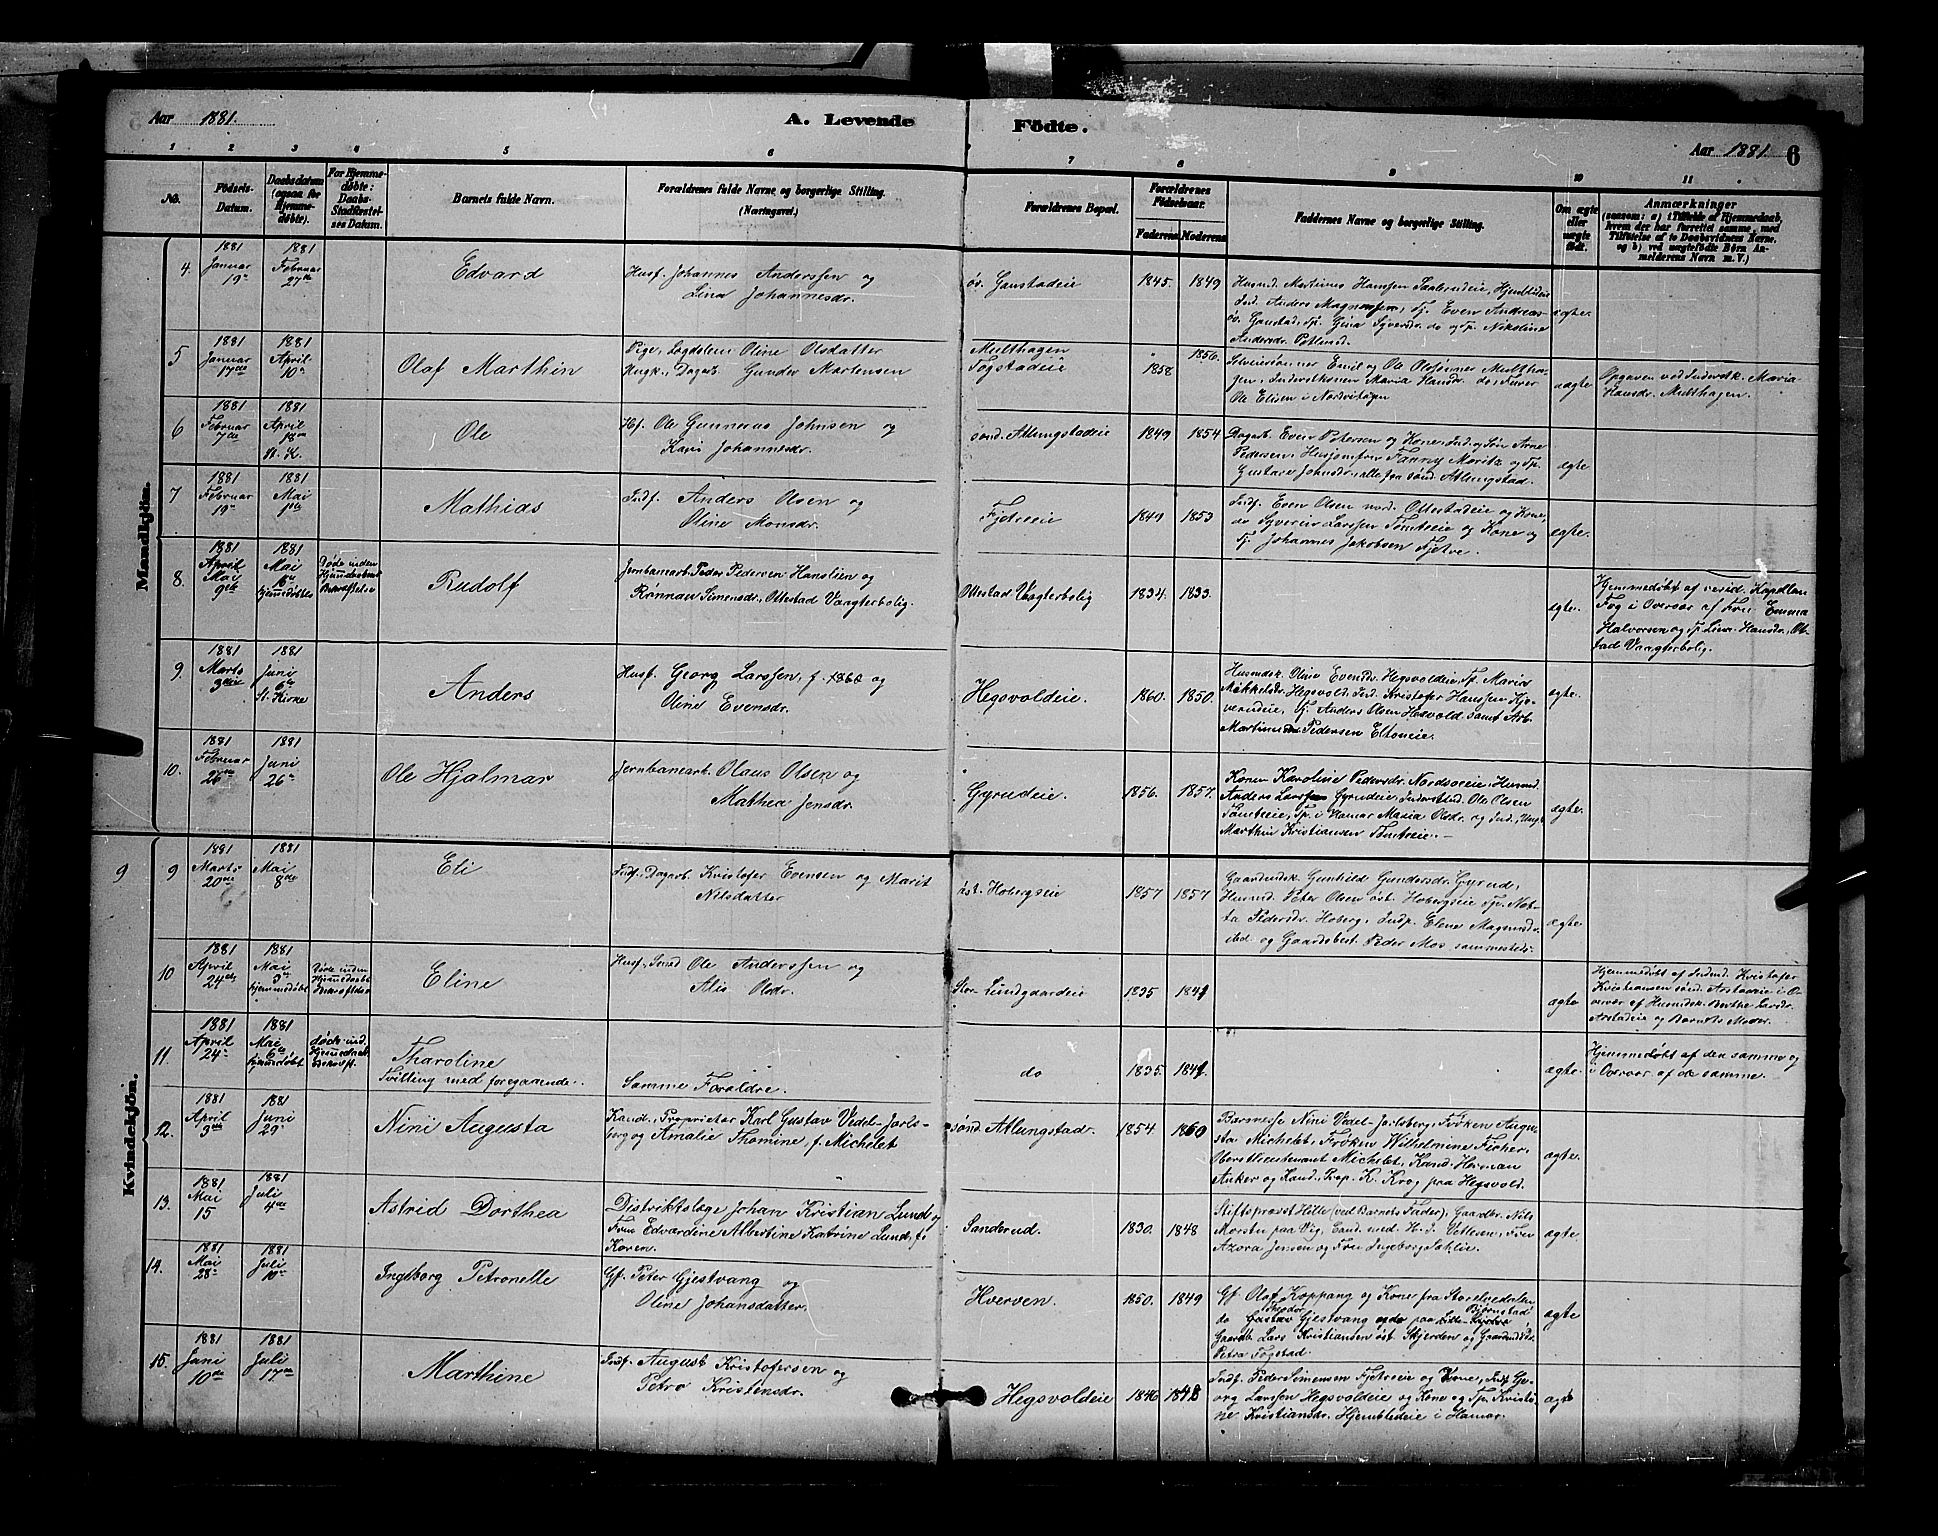 Aar 1881.
A. Levende Födte.
Aar 1881
6
1 2 3 4 5 6 7 8 9 10 11
No.
Födsels-Datum.
Daabsdatum (ogsaa for Hjemmedöbte).
For Hjemmedöbte: Daabs-Stadfæstelses Datum.
Barnets fulde Navn.
Forældrenes fulde Navne og borgerlige Stilling. (Næringsvei.)
Forældrenes Bopæl.
Forældrenes Födselsaar.
Faderens
Moderens
Faddernes Navne og borgerlige Stilling.
Om ægte eller uægte födt.
Anmærkninger
(saasom: a) i Tilfælde af Hjemmedaab, hvem der har forrettet samme, med Tilföielse af to Daabsvidners Navne. og b) ved uægtefödte Börn Anmelderens Navn m. V.)
Mandkjön.
4
1881 Januar 19de
1881 Februar 27de
Edvard
Husf. Johannes Anderssen og
Lina Johannesdr.
öv. Gaustadeie
1845.
1849
Husmd. Martinus Hanssen Saalerudeie, Hjemstedeie
Ind. Anders Magnussen, Tj. Even Andreas-
öv. Gaustad, Tp. Gina Syversdr. do og Tp. Nikoline
Andersdr.
ægte.
5
1881 Januar 17de
1881 April 10de
Olaf Marthin
Pige, Lægdslem Oline Olsdatter
Ungk., Dagarb. Gunder Martensen
Multhagen
Fogstadeie
1858
1856.
Selveiersönner Emil og Ole Olsönner Multha-
gen, Inderstkonen Maria Hansdr. do, Furer
Ole Elisen i Nordvithagen
uægte
Opgaven ved Inderstk. Maria
Hansdr. Multhagen.
6
1881 Februar 7de
1881 April 18de St. K.
Ole
Hf. Ole Gunnerus Johnsen og
Karis Johannesdr.
sönd. Atlungstadeie
1849
1854
Dagarb. Even Petersen og Kone, Ind. og Sön Arne
Pedersen, Husjomfru Fanny Moritz og Tp.
Gustava Johnsdr., alle fra sönd. Atlungstad.
ægte
7
1881 Februar 19de
1881 Mai 1ste
Mathias
Indf. Anders Olsen og
Oline Monsdr.
Fjetreeie
1849
1853
Indf. Even Olsen nord. Ottestadeie og Kone,
do Syverin Larssen Tomtreeie og Kone og
Tj. Johannes Jakobsen Fjetre.
ægte.
8.
1881 April Mai 9de
1881 Mai 16de hjemmedöbtes
Döde inden Hjemmedaabens Bekræftelse
Rudolf
Jernbanearb. Peder Pedersen Hanslien og
Rönnau Simensdr., Ottestad Vaagterbolig.
Ottestad Vaagterbolig
1834.
1833.
ægte.
Hjemmedöbt af resid. Kapellan
Fog i Overvær af Fru Emma
Halvorsen og Tp. Lise Hansdr., Ot-
testad Vaagterbolig.
9.
1881 Marts 3die
1881 Juni 6te St. Kirke
Anders
Husf. Georg Larssen, f. 1860 og
Oline Evensdr.
Hegsvoldeie.
1860.
1850.
Husmdsk. Oline Evensdr. Hegsvoldeie, Tp. Maria
Mikkelsdr. Hegsvold, Ind. Kristofer Hanssen Kjo-
verudeie, Tj. Anders Olsen Hosvold samt Arb.
Martinus Pedersen Eltoneie.
ægte.
10.
1881 Februar 26de
1881 Juni 26de
Ole Hjalmar
Jernbanearb. Olaus Olsen og
Mathea Jensdr.
Gyrudeie.
1856.
1857.
Konen Karoline Pedersdr. Nordsveeie, Husmd.
Anders Larssen Gyrudeie, Inderstmd. Ole Olsen
Tomtreeie, Tp. i Hamar Maria Olsdr. og Ind., Ungk.
Marthin Kristiansen Tomtreeie.
ægte.
Kvindekjön.
9
9
1881 Marts 20de
1881 Mai 8de
Eli
Indf. Dagarb. Kristofer Evensen og Marit
Nilsdatter
öst. Hobergseie
1857
1857
Gaardmdsk. Gunhild Gundersdr. Gyrud,
Husmd. Peter Olsen öst. Hobergseie, Tp. Net-
ta Pedersdr. Hoberg, Indp. Elene Magensdr.
ibd. og Gaardsbest. Peder Mos sammesteds.
ægte
10
1881 April 24de
1881 Mai 3die hjemmedöbt
Döde inden Hjemmedaabs Bekræftelse
Eline
Husf. Smed Ole Anderssen og
Alis Olsdr.
Stor Lundgaardeie
1835
1841
ægte
Hjemmedöbt af Indmd. Kristofer
Kristiansen sönd. Arstadeie i O-
vervær af Husmdsk. Berthe Larsdr.
Arstadeie og Barnets Moder.
11
1881 April 24de
1881 Mai 6te hjemmedöbt
döde ind. Hjemmedaab. Bekræft.
Tharoline
Tvilling med foregaaende.
Samme Forældre.
do
1835.
1841.
ægte.
Hjemmedöbt af den samme og
i Overvær af de samme.
12.
1881 April 3die
1881 Juni 29de
Nini Augusta
Kand., Proprietær Karl Gustav Vedel-Jarls-
berg og Amalie Thomine, f. Michelet
sönd. Atlungstad.
1854
1860
Baronesse Nini Vedel-Jarlsberg, Fröken Augu-
sta Michelet, Fröken Wilhelmine Fischer,
Oberstlieutenant Michelet, Kand. Herman
Anker og Kand., Prop. K. Krog paa Hegsvold.
ægte.
13.
1881 Mai 15
1881 Juli 4de
Astrid Dorthea
Distriktslæge Johan Kristian Lund og
Fru Edvardine Albertine Katrine Lund, f.
Koren.
Sanderud.
1830.
1848
Stiftsprovst Hille (ved Barnets Fader), Gaardbr. Nils
Morstu paa Vig, Cand. med. H. J. Vetlesen, Fru
Azora Jensen og Fru Ingeborg Sahlie.
ægte
14.
1881 Mai 28de
1881 Juli 10de
Ingeborg Petronelle
Gf. Peter Gjestvang og
Oline Johansdatter.
Hverven.
1850.
1849
Gf. Olaf Koppang og Kone fra Storelvedalen
do Theodor Gustav Gjestvang og do paa Lille- Björnstad,
Gaardb. Lars Kristiansen öst. Skjerden og
Petra Fogstad.
ægte
15.
1881 Juni 10de
1881 Juli 17de
Marthine
Indf. August Kristofersen og
Petra Kristensdr.
Hegsvoldeie
1846
1848
Indf. Peder Simensen Fjetreeie og Kone, Indf. Ge-
org Larssen Hegsvoldeie og Kone og Tp. Kristi-
ne Kristiansdr. Hjemstedeie i Hamar.
ægte